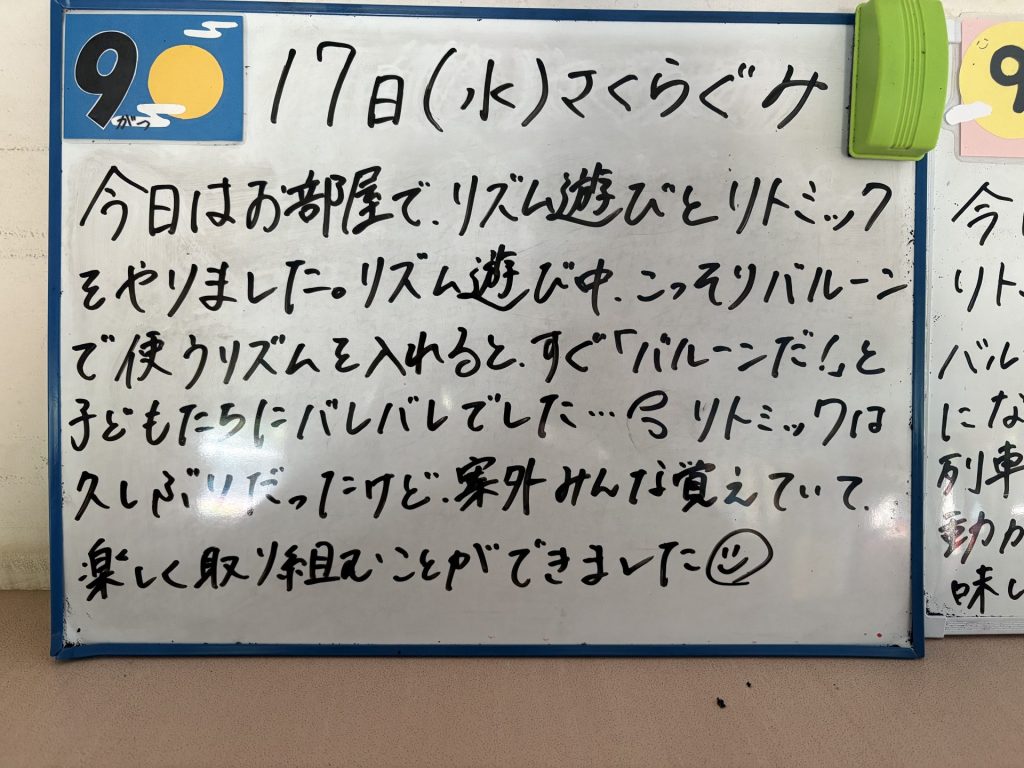 9がつ
17日(水)さくらぐみ
今日はお部屋で、リズム遊びとリトミック
をやりました。リズム遊び中、こっそりバルーン
で使うリズムを入れると、すぐ「バルーンだ!」と
子どもたちにバレバレでした…
リトミックは
久しぶりだったけど、案外みんな覚えていて、
楽しく取り組むことができました
9
今
リト
バル
にな
列車
動か
味し